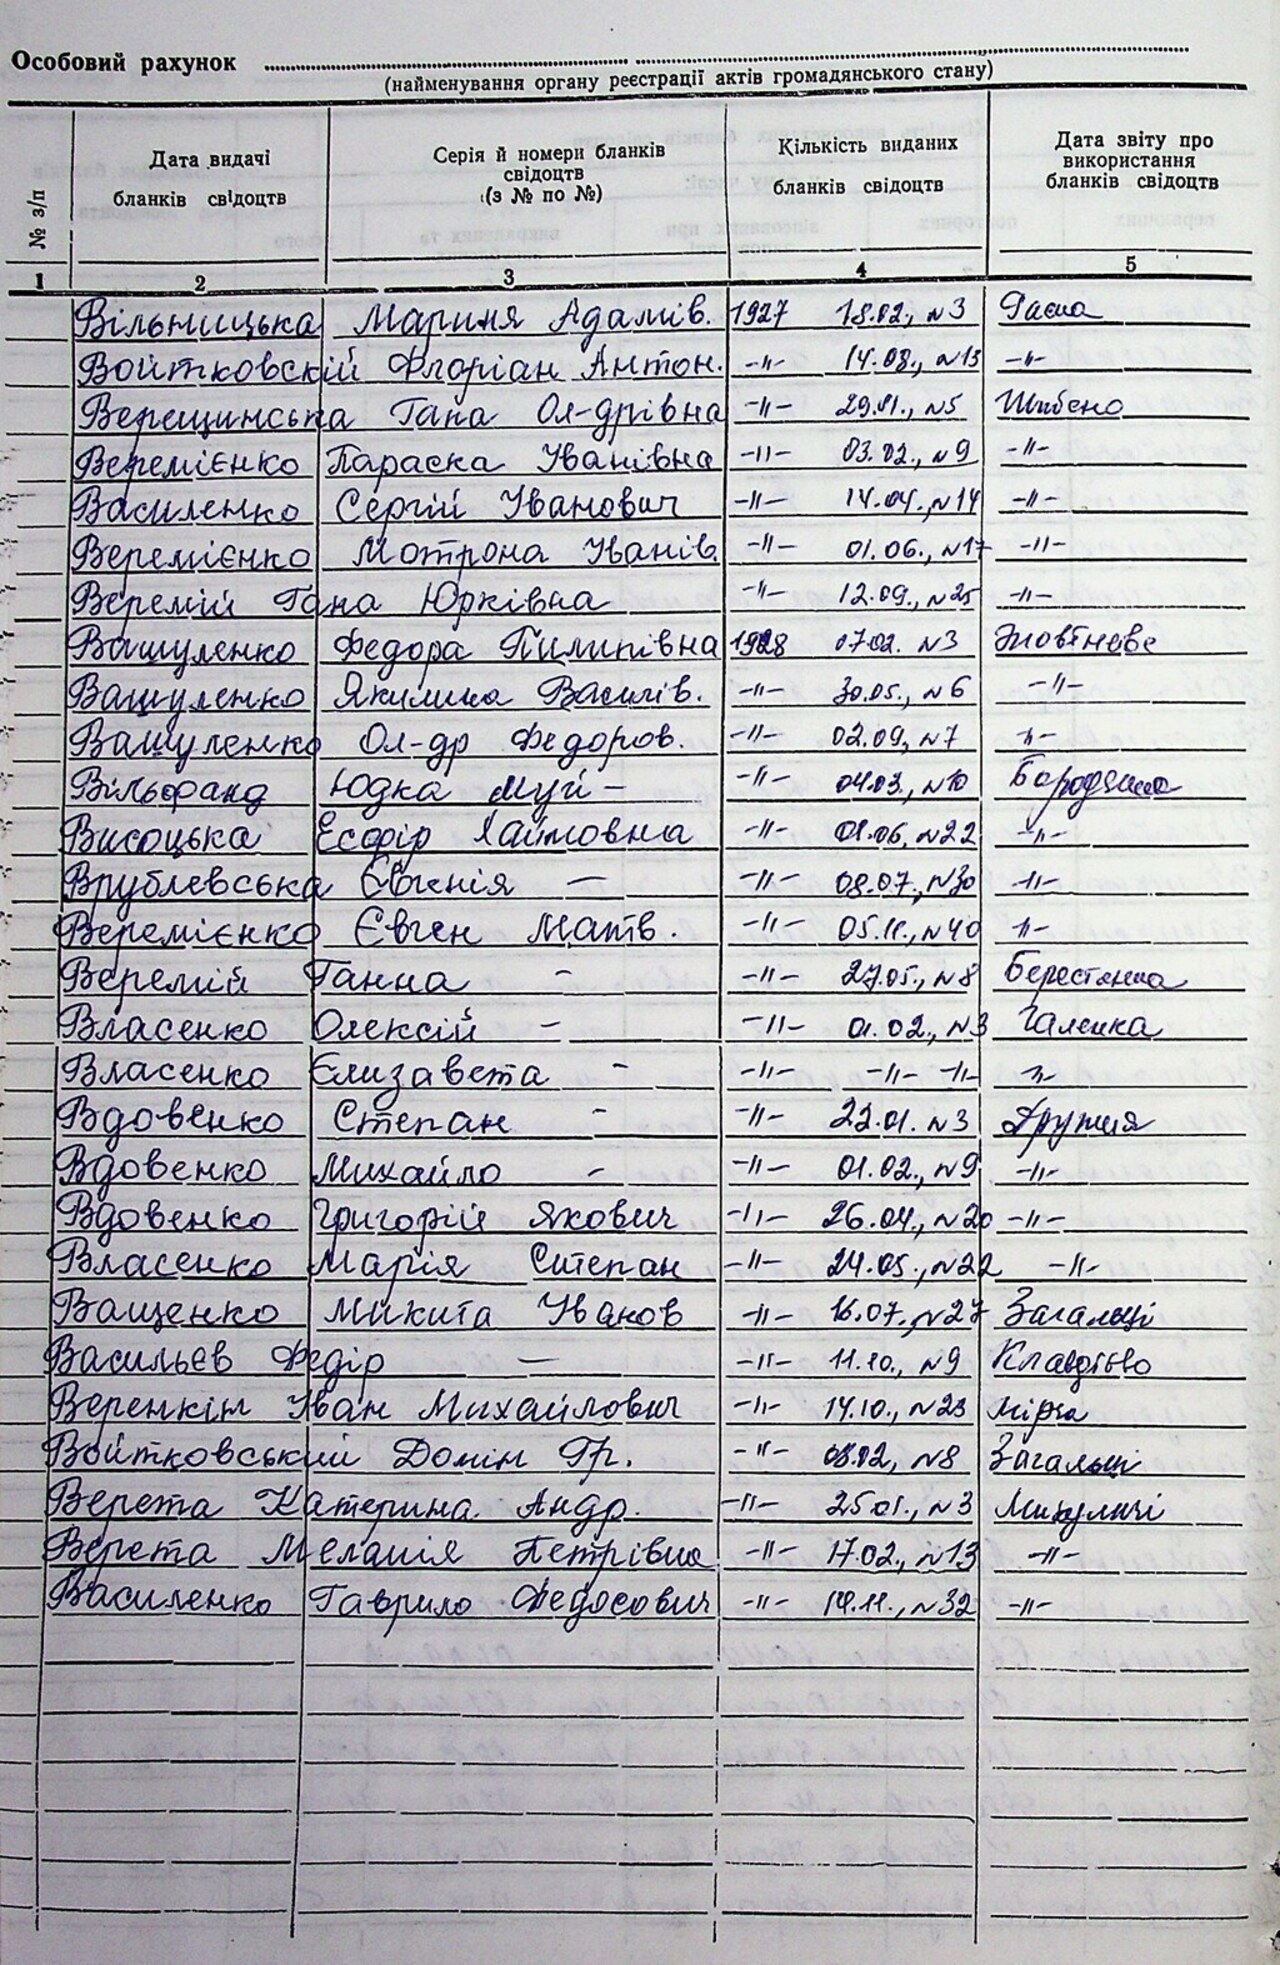 Особовий рахунок
(найменування органу реєстрації актів громадянського стану)
№ з/п
Дата видачі бланків свідоцтв
Серія й номери бланків свідоцтв (з № по №)
Кількість виданих бланків свідоцтв
Дата звіту про використання бланків свідоцтв
1 2 3 4 5
Вільницька Марина Адамів. 1927 18.02., №3 Раска
Войтковскій Флоріан Антон. -"- 14.08., №13 -"-
Верещинська Гана Ол-дрівна -"- 29.01., №5 Шибено
Веремієнко Параска Іванівна -"- 03.02., №9 -"-
Василенко Сергій Іванович -"- 14.04., №14 -"-
Веремієнко Мотрона Іванів. -"- 01.06., №17 -"-
Веремій Гана Юрківна -"- 12.09., №25 -"-
Ващуленко Федора Пилипівна 1928 07.02. №3 Жовтневе
Ващуленко Якилина Василів. -"- 30.05., №6 -"-
Ващуленко Ол-др Федоров. -"- 02.09, №7 -"-
Вільфанд Юдка Муй - -"- 04.03., №10 Бородянка
Висоцька Есфір Хаймовна -"- 01.06, №22 -"-
Врублевська Євгенія — -"- 08.07., №30 -"-
Веремієнко Євген Матв. -"- 05.11., №40 -"-
Веремій Ганна - -"- 27.05., №8 Берестянка
Власенко Олексій - -"- 01.02., №3 Галенка
Власенко Єлизавета - -"- -"- -"- -"-
Вдовенко Степан - -"- 22.01. №3 Дружня
Вдовенко Михайло - -"- 01.02., №9 -"-
Вдовенко Григорій Якович -"- 26.04., №20 -"-
Власенко Марія Степан -"- 24.05., №22 -"-
Ващенко Микита Іванов -"- 16.07., №27 Загальці
Васильєв Федір — -"- 11.10., №9 Клавдієво
Веренкін Іван Михайлович -"- 14.10., №23 Мірча
Войтковський Домін Гр. -"- 08.02, №8 Загальці
Верета Катерина Андр. -"- 25.01., №3 Микуличі
Верета Меланія Петрівна -"- 17.02., №13 -"-
Василенко Гаврило Федосович -"- 14.11., №32 -"-